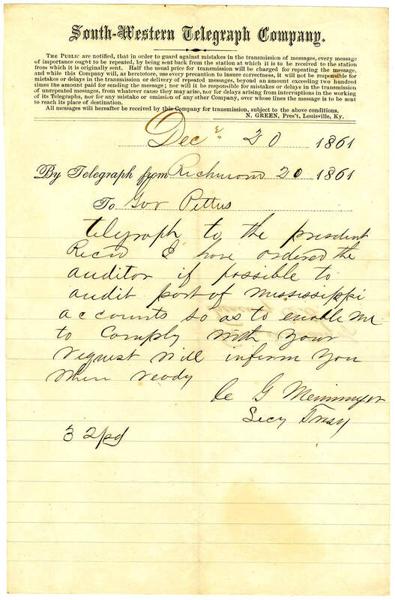 South-Western Telegraph Company.
The Public are notified, that in order to guard against mistakes in the transmission of messages, every message
of importance ought to be repeated, by being sent back from the station at which it is to be received to the station
from which it is originally sent. Half the usual price for transmission will be charged for repeating the message,
and while this Company will, as heretofore, use every precaution to insure correctness, it will not be responsible for
mistakes or delays in the transmission or delivery of repeated messages, beyond an amount exceeding two hundred
times the amount paid for sending the message; nor will it be responsible for mistakes or delays in the transmission of
unrepeated messages, from whatever cause they may arise, nor for delays arising from interruptions in the working
of its Telegraphs, nor for any mistake or omission of any other Company, over whose lines the message is to be sent
to reach its place of destination.
All messages will hereafter be received by this Company for transmission, subject to the above conditions.
N. GREEN, Pres't, Louisville, Ky.
Decr 20 1861
By Telegraph from Richmond 20 1861
To Gov Pettus
telegraph to the president
Recd I have ordered the
auditor if possible to
audit part of Mississippi
accounts so as to enable me
to comply with your
request will inform you
when ready
C G Memminger
Secy Treasy
32 pd